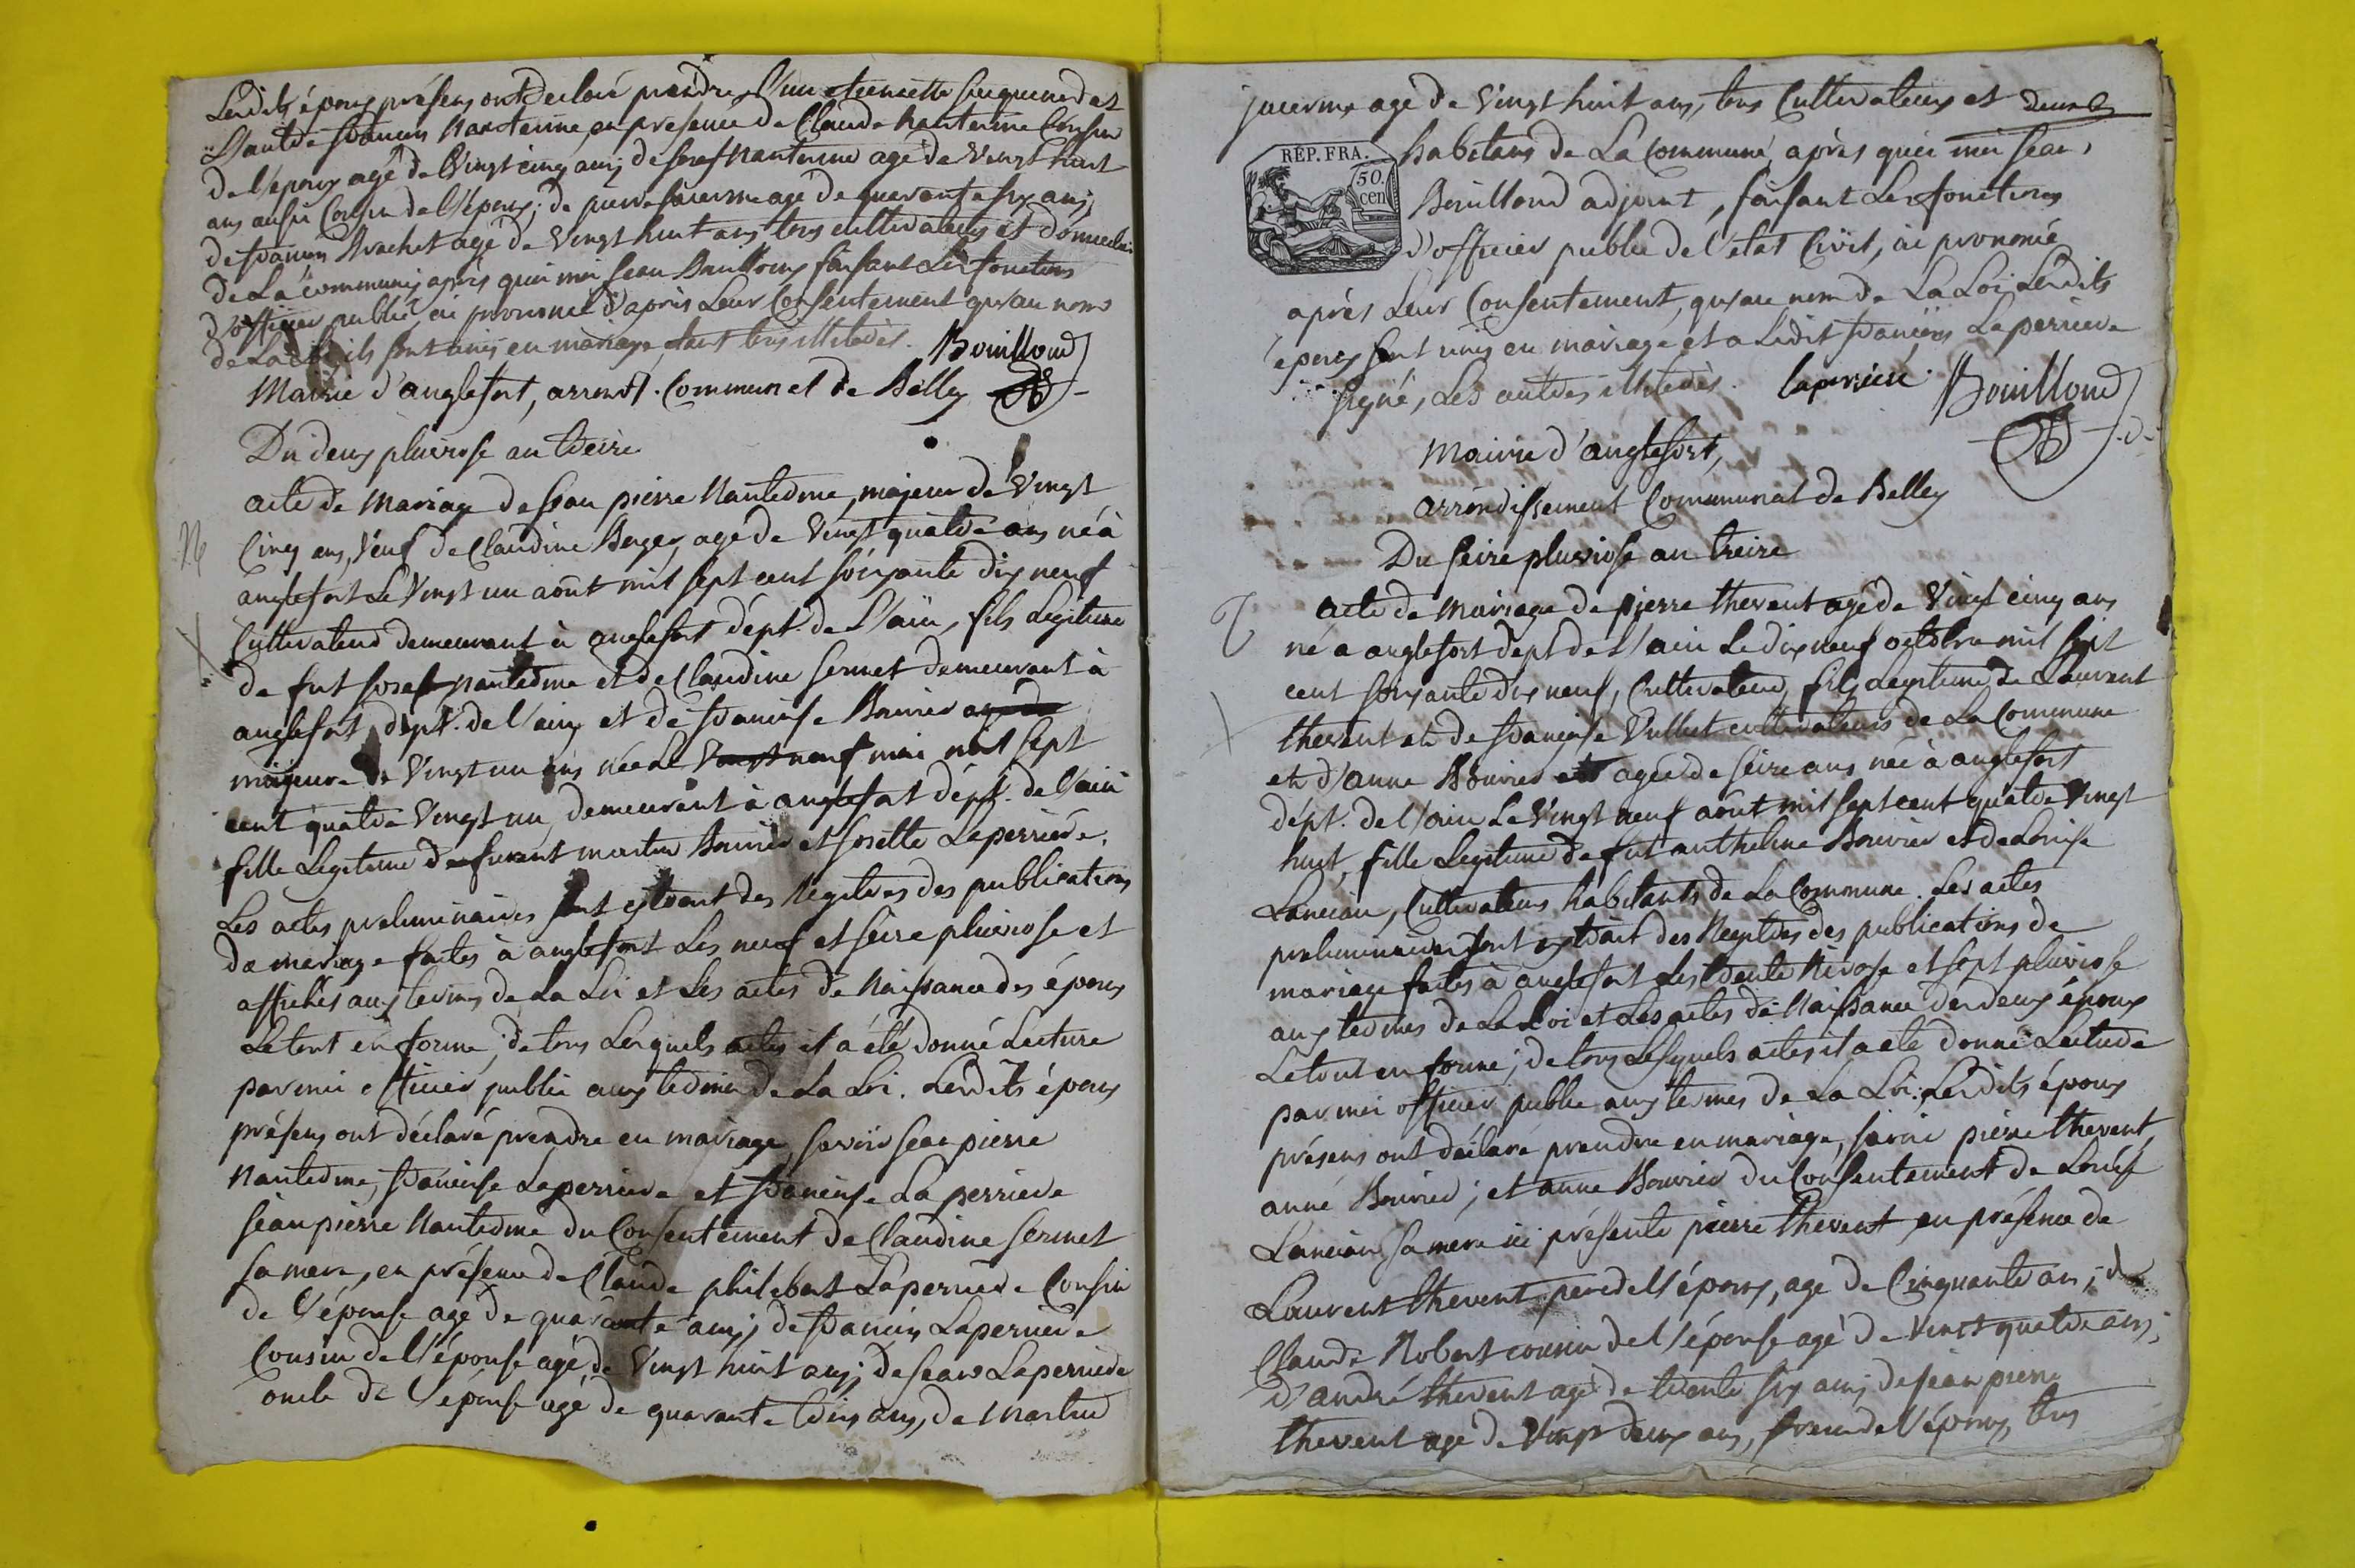 Lesdits époux présens ont declaré prendre l'un etiennette seuquened et
L'autre françois Nanterme, en presence de Claude Nanterme Cousin
de l'époux agé de Vingt cinq ans; de Josef Nanterme agé de Vingt huit
ans aussi Cousin de l'époux; de pierre jacerme agé de quarante six ans,
de françois Brachet agé de Vingt huit ans tous cultivateurs et domicilies
de La commune, après quoi moi Jean Bouilloux faisant Les fonctions
d'officier public ai prononcé d'après Leur Consentement qu'au nom
de La Loi ils sont unis en mariage, tous illiterés. Bouilloud
Mairie d'anglefort, arrondt. Communel de Belley
Du deux pluviose an treize
acte de Mariage de Jean pierre Nanterme, majeur de Vingt
Cinq ans, Veuf de Claudine Berger, agé de Vingt quatre ans né à
anglefort Le Vingt un août mil sept cent soixante dix neuf
Cultivateur demeurant à anglefort dépt. de L'ain, fils Legitime
de fut Josef Nanterme et de Claudine Sermet demeurant à
anglefort dépt. de l'ain et de françoise Bouvier agé de
majeure de Vingt un ans née Le Vingt neuf mai mil sept
cent quatre Vingt un, demeurant à anglefort dépt. de l'ain
fille Legitime de furent martin Bouvier et Josette Laperriere.
Les actes preliminaires sont extrait des Registres des publications
de mariage faites à anglefort Les neuf et seize pluviose et
affichés aux termes de La Loi et Les actes de Naissance des époux
Le tout en forme; de tous Lesquels actes il a été donné Lecture
par moi officier public aux termes de La Loi. Lesdits époux
présens ont déclaré prendre en mariage, savoir Jean pierre
Nanterme, françoise Laperriere et françoise La perriere
Jean pierre Nanterme du Consentement de Claudine Sermet
sa mere, en présence de Claude philebert Laperriere Cousin
de l'épouse agé de quarante ans; de françois Laperriere
Cousin de l'épouse agé de Vingt huit ans; de Jean Laperriere
oncle de l'épouse agé de quarante trois ans, de Martin
jacerme agé de Vingt huit ans, tous Cultivateurs et
REP. FRA.
50.
cen
habitans de La Commune, après quoi moi Jean
Bouilloud adjoint, faisant Les fonctions
d'officier public de l'etat Civil, ai prononcé
après Leur Consentement, qu'au nom de La Loi Lesdits
époux sont unis en mariage et a Ledit françois Laperriere
signé, Les autres illiterés. Laperriere Bouilloud
Mairie d'anglefort,
arrondissement Communal de Belley
Du seize pluviose an treize
acte de Mariage de pierre thevent agé de Vingt cinq ans
né a anglefort dept de L'ain Le dix neuf octobre mil sept
cent soixante dix neuf, Cultivateur, fils Legitime de Laurent
thevent et de françoise Vulliet cultivateurs de La Commune
et d'anne Bouvier agée de seize ans née à anglefort
dépt. de l'ain Le Vingt neuf août mil sept cent quatre Vingt
huit, fille Legitime de fut anthelme Bouvier et de Louise
Lancian, Cultivateurs habitants de La Commune. Les actes
preliminaires sont extrait des Registres des publications de
mariage faites à anglefort Les trente Nivose et sept pluviose
aux termes de La Loi et Les actes de Naissance des deux époux
Le tout en forme; de tous Lesquels actes il a eté donné Lecture
par moi officier public aux termes de La Loi. Lesdits époux
présens ont déclaré prendre en mariage, savoir pierre thevent,
anne Bouvier; et anne Bouvier du Consentement de Louise
Lancian sa mere ici présente pierre thevent, en présence de
Laurent thevent pere de l'époux, agé de Cinquante ans; de
Claude Robert cousin de l'épouse agé de Vingt quatre ans;
d'andré thevent agé de trente six ans; de jean pierre
thevent agé de Vingt deux ans, frere de l'époux, tous